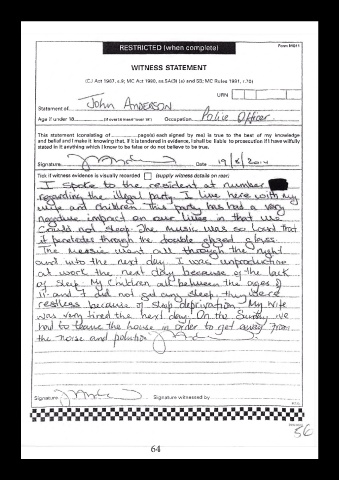 RESTRICTED (when complete)
Form MG11
WITNESS STATEMENT
(CJ Act 1967, s.9; MC Act 1980, ss.5A(3) (a) and 5B; MC Rules 1981, r.70)
URN
Statement of John ANDERSON
Age if under 18 (if over 18 insert 'over 18') Occupation Police Officer
This statement (consisting of page(s) each signed by me) is true to the best of my knowledge
and belief and I make it knowing that, if it is tendered in evidence, I shall be liable to prosecution if I have wilfully
stated in it anything which I know to be false or do not believe to be true.
Signature Date 19/8/2014
Tick if witness evidence is visually recorded (supply witness details on rear)
I spoke to the resident at number
regarding the illegal party. I live here with my
wife and children. This party has had a very
negative impact on our lives in that we
could not sleep. The music was so loud that
it penetrates through the double glazed glass.
The music went all through the night
and into the next day. I was unproductive
at work the next day because of the lack
of sleep. My children all between the ages of
11 and 7 did not get any sleep, they were
restless because of sleep deprivation. My wife
was very tired the next day. On the Sunday we
had to leave the house in order to get away from
the noise and pollution
Signature Signature witnessed by
64
56